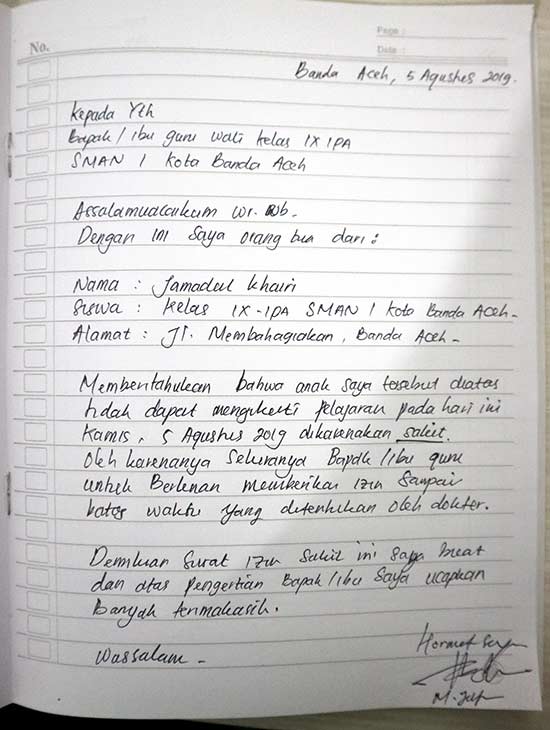 No.
Page :
Date :
Banda Aceh, 5 Agustus 2019.
Kepada Yth
Bapak / ibu guru wali kelas IX IPA
SMAN 1 Kota Banda Aceh
Assalamualaikum wr. wb.
Dengan ini saya orang tua dari :
Nama : Jamadul Khairi
Siswa : Kelas IX-IPA SMAN 1 Koto Banda Aceh-
Alamat : Jl. Membahagiakan, Banda Aceh -
Memberitahukan bahwa anak saya tersebut diatas
tidak dapat mengikuti pelajaran pada hari ini
Kamis, 5 Agustus 2019 dikarenakan sakit.
Oleh karenanya sekiranya Bapak / ibu guru
untuk Berkenan memberikan izin sampai
batas waktu yang ditentukan oleh dokter.
Demikian surat izin sakit ini saya buat
dan atas pengertian Bapak / ibu saya ucapkan
Banyak terimakasih.
Wassalam -
Hormat saya